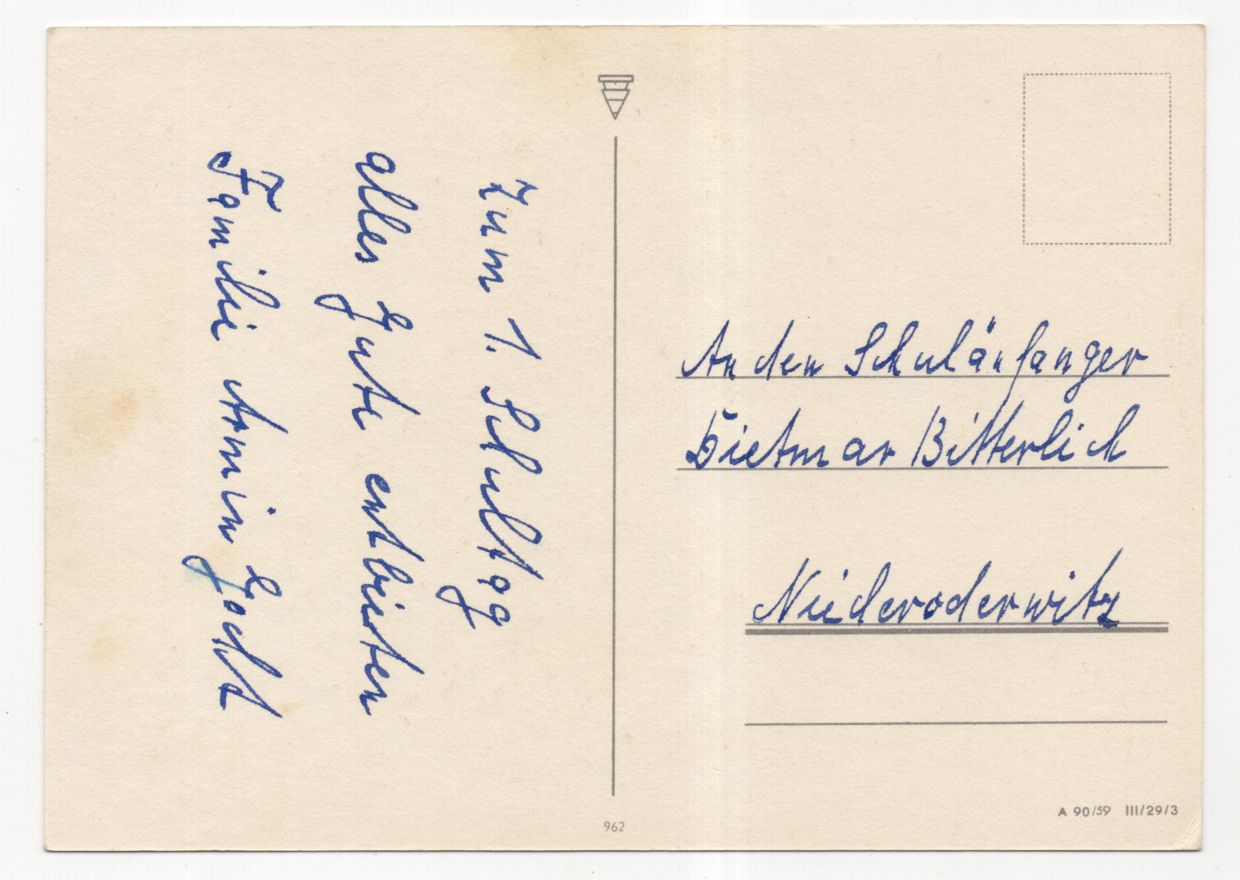 Zum 1. Schultag
alles Gute entbieten
Familie Armin Gocht
An den Schulänfanger
Dietmar Bitterlich
Niederoderwitz
962
A 90/59 III/29/3